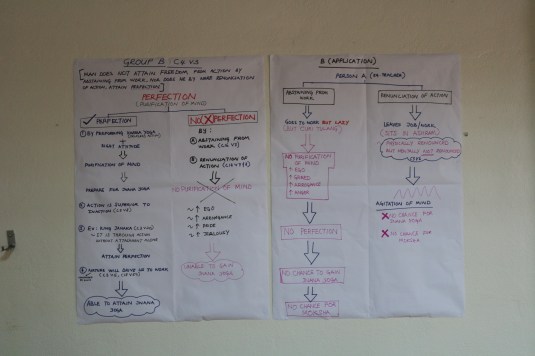 GROUP B : C3 V.4
MAN DOES NOT ATTAIN FREEDOM, FROM ACTION BY
ABSTAINING FROM WORK, NOR DOES HE BY MERE RENUNCIATION
OF ACTION, ATTAIN PERFECTION
PERFECTION
(PURIFICATION OF MIND)
PERFECTION
① BY PERFORMING KARMA YOGA
ATTITUDE
PURIFICATION OF MIND
PREPARE FOR JNANA YOGA
② ACTION IS SUPERIOR TO
INACTION
③ EX: KING JANAKA
IT IS THROUGH ACTION
WITHOUT ATTACHMENT ALONE
ATTAIN PERFECTION
④ NATURE WILL DRIVE US TO WORK
ABLE TO ATTAIN JNANA
YOGA
NO PERFECTION
BY :
Ⓐ ABSTAINING FROM
WORK
Ⓑ RENUNCIATION OF
ACTION
NO PURIFICATION OF MIND
~ ↑ EGO
~ ↑ ARROGANCE
~ ↑ PRIDE
~ ↑ JEALOUSY
UNABLE TO GAIN
JNANA YOGA
B (APPLICATION)
PERSON A, (EX-TEACHER)
ABSTAINING FROM
WORK
GOES TO WORK BUT LAZY
(BUT CURI TULANG)
NO PURIFICATION
OF MIND
↑ EGO
↑ GREED
↑ ARROGANCE
↑ ANGER
NO PERFECTION
NO CHANCE TO GAIN
JNANA YOGA
NO CHANCE FOR
MOKSHA
RENUNCIATION OF ACTION
LEAVES JOB/WORK
(SITS IN ASHRAM)
PHYSICALLY RENOUNCED
BUT MENTALLY NOT RENOUNCED
AGITATION OF MIND
X NO CHANCE FOR
JNANA YOGA
X NO CHANCE FOR
MOKSHA